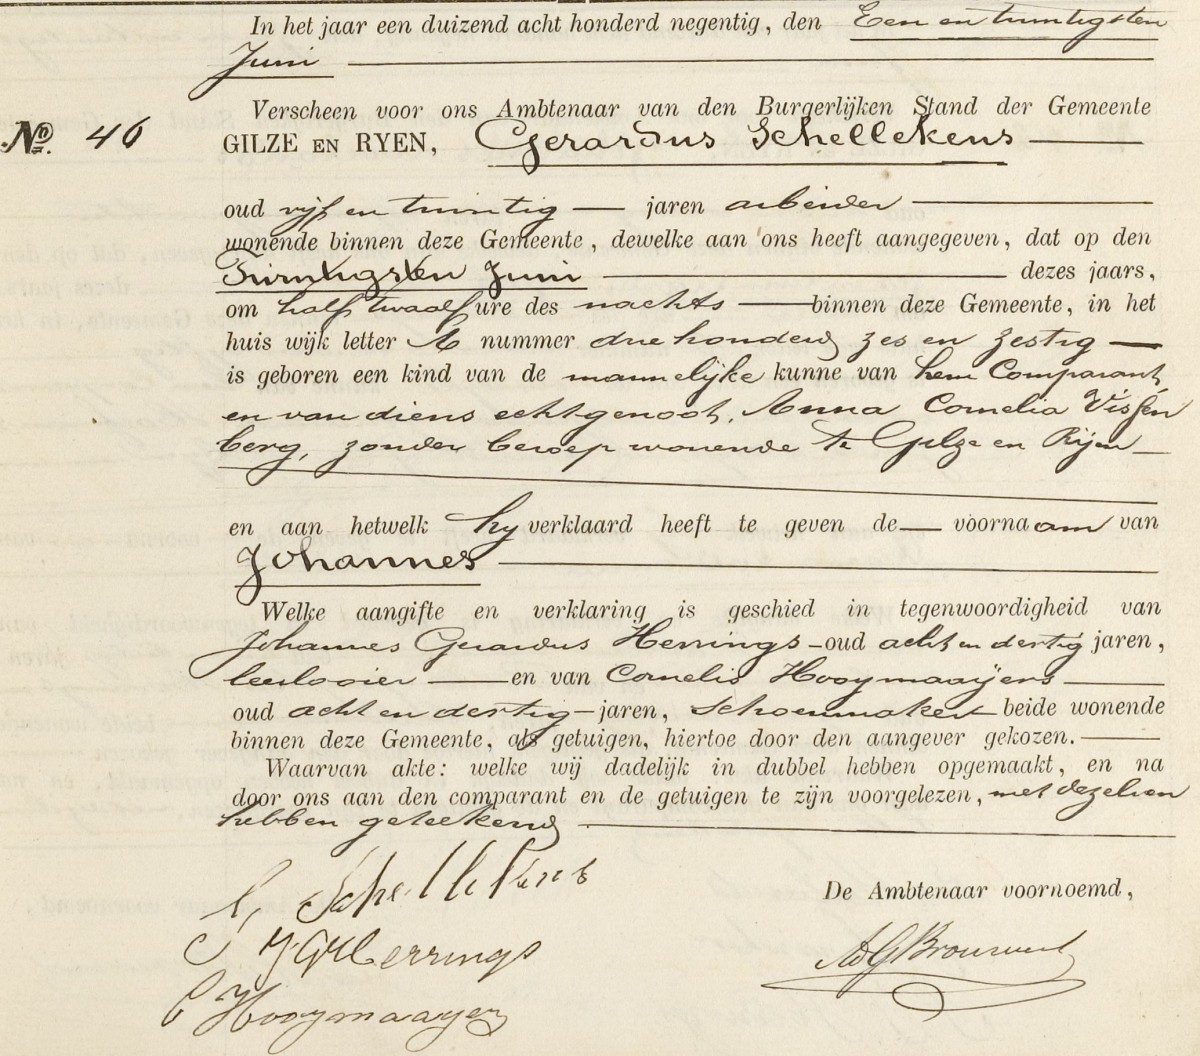 In het jaar een duizend acht honderd negentig, den Een en twintigsten
Juni
Verscheen voor ons Ambtenaar van den Burgerlijken Stand der Gemeente
No. 46 GILZE EN RYEN, Gerardus Schellekens
oud vijf en twintig jaren arbeider
wonende binnen deze Gemeente, dewelke aan ons heeft aangegeven, dat op den
Twintigsten Juni dezes jaars,
om half twaalf ure des nachts binnen deze Gemeente, in het
huis wijk letter A nummer driehonderd zes en zestig
is geboren een kind van de mannelijke kunne van hem Comparant
en van diens echtgenoot, Anna Cornelia Vissen
berg, zonder beroep wonende te Gilze en Rijen
en aan hetwelk hij verklaard heeft te geven de voornaam van
Johannes
Welke aangifte en verklaring is geschied in tegenwoordigheid van
Johannes Gerardus Herrings oud acht en dertig jaren,
leerlooier en van Cornelis Hooymaaijers
oud acht en dertig jaren, schoenmaker beide wonende
binnen deze Gemeente, als getuigen, hiertoe door den aangever gekozen.
Waarvan akte: welke wij dadelijk in dubbel hebben opgemaakt, en na
door ons aan den comparant en de getuigen te zijn voorgelezen, met dezelven
hebben geteekend
G Schellekens
De Ambtenaar voornoemd,
J G Herrings
AdGBrouwers
C Hooymaayers